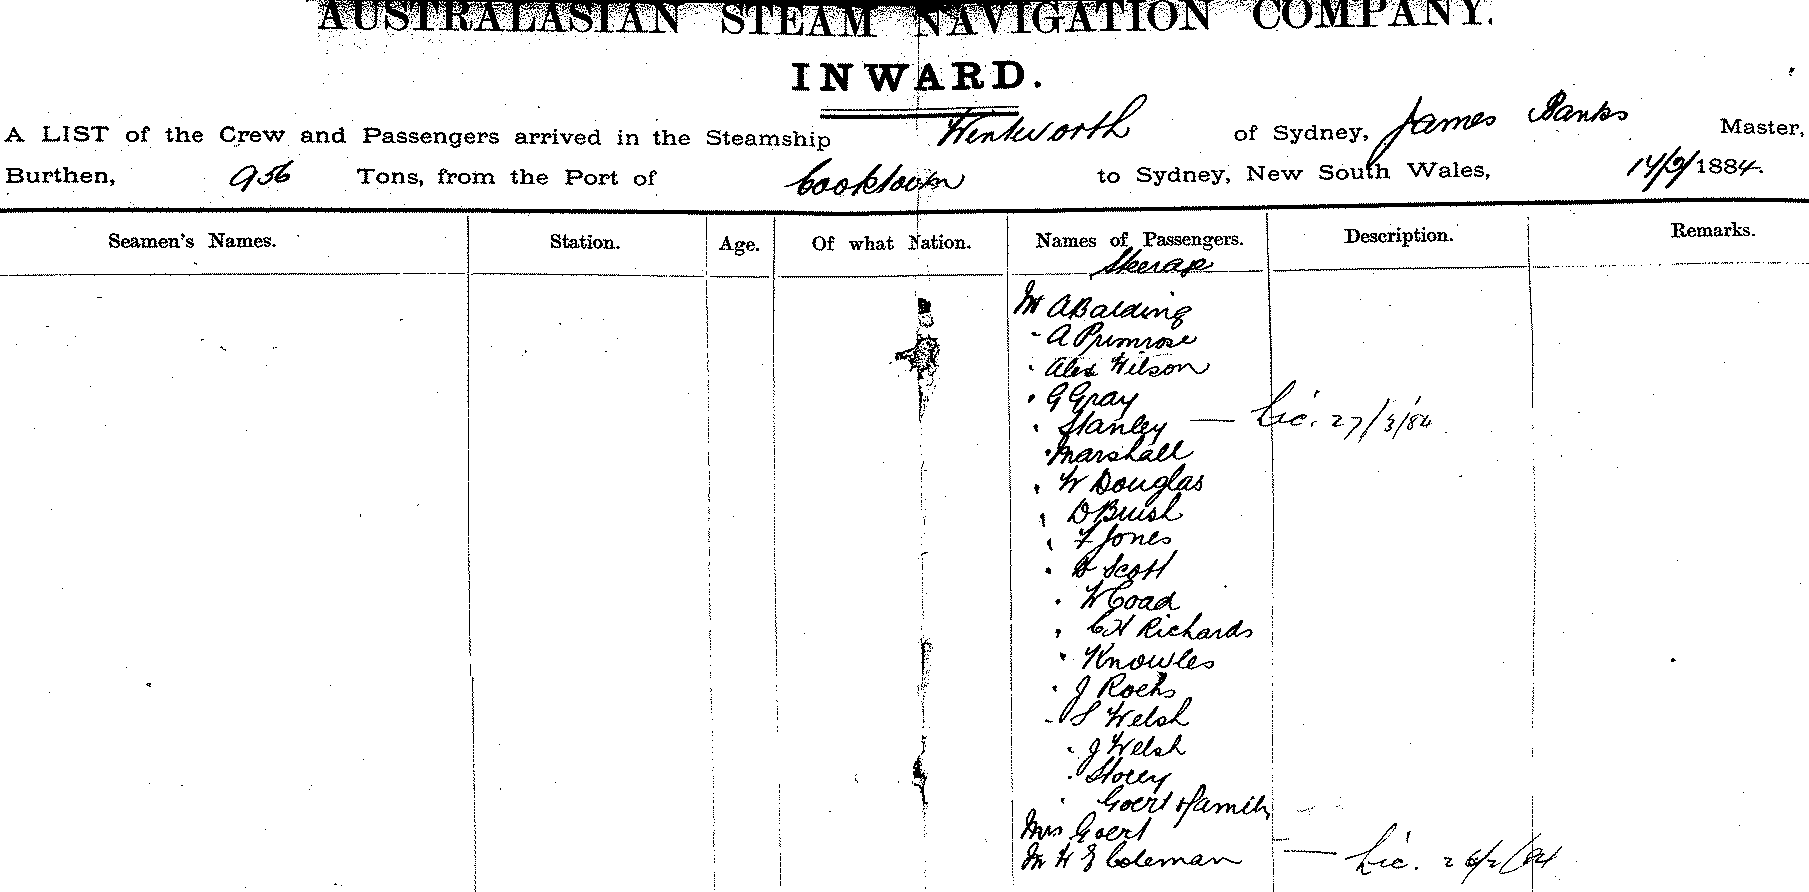 AUSTRALASIAN STEAM NAVIGATION COMPANY.
INWARD.
A LIST of the Crew and Passengers arrived in the Steamship Wentworth of Sydney, James Banks Master,
Burthen, 956 Tons, from the Port of Cooktown to Sydney, New South Wales, 14/2/1884.
Seamen's Names. Station. Age. Of what Nation. Names of Passengers. Description. Remarks.
Steerage
Mr A Balding
" A Primrose
" Alex Wilson
" G Gray
" Stanley — Lic. 27/3/84
" Marshall
" W Douglas
" D Brush
" F Jones
" Scott
" W Coad
" C H Richards
" Knowles
" J Roehs
" S Welsh
" J Welsh
" Storey
" Goert & family
Mrs Goert
Mr H E Coleman — Lic. 26/2/84